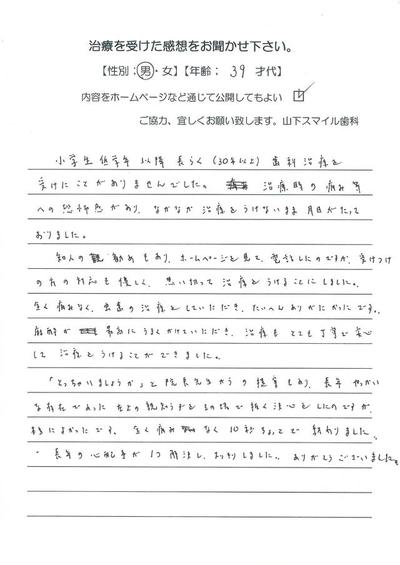 治療を受けた感想をお聞かせ下さい。
【性別：男・女】【年齢： 39 才代】
内容をホームページなど通じて公開してもよい ☑
ご協力、宜しくお願い致します。山下スマイル歯科
小学生低学年以降 長らく (30年以上) 歯科治療を
受けたことがありませんでした。 治療時の痛み等
への恐怖感があり、なかなか治療をうけないまま 月日がたって
おりました。
知人の 勧めもあり、ホームページを見て、電話したのですが、受けつけ
の方の対応も優しく、思い切って治療をうけることにしました。
全く痛みなく、虫歯の治療をしていただき、たいへんありがたかったです。
麻酔が 最高にうまくかけていただき、治療も とても丁寧で安心
して 治療をうけることができました。
「とっちゃいましょうか」と院長先生からの提案もあり、長年 やっかい
な存在であった 左上の親知らずをその場で抜く決心をしたのですが、
本当によかったです。全く痛み なく 10秒ちょっとで 終わりました。
長年の心配事が 1つ解決し、すっきりしました。ありがとうございました。